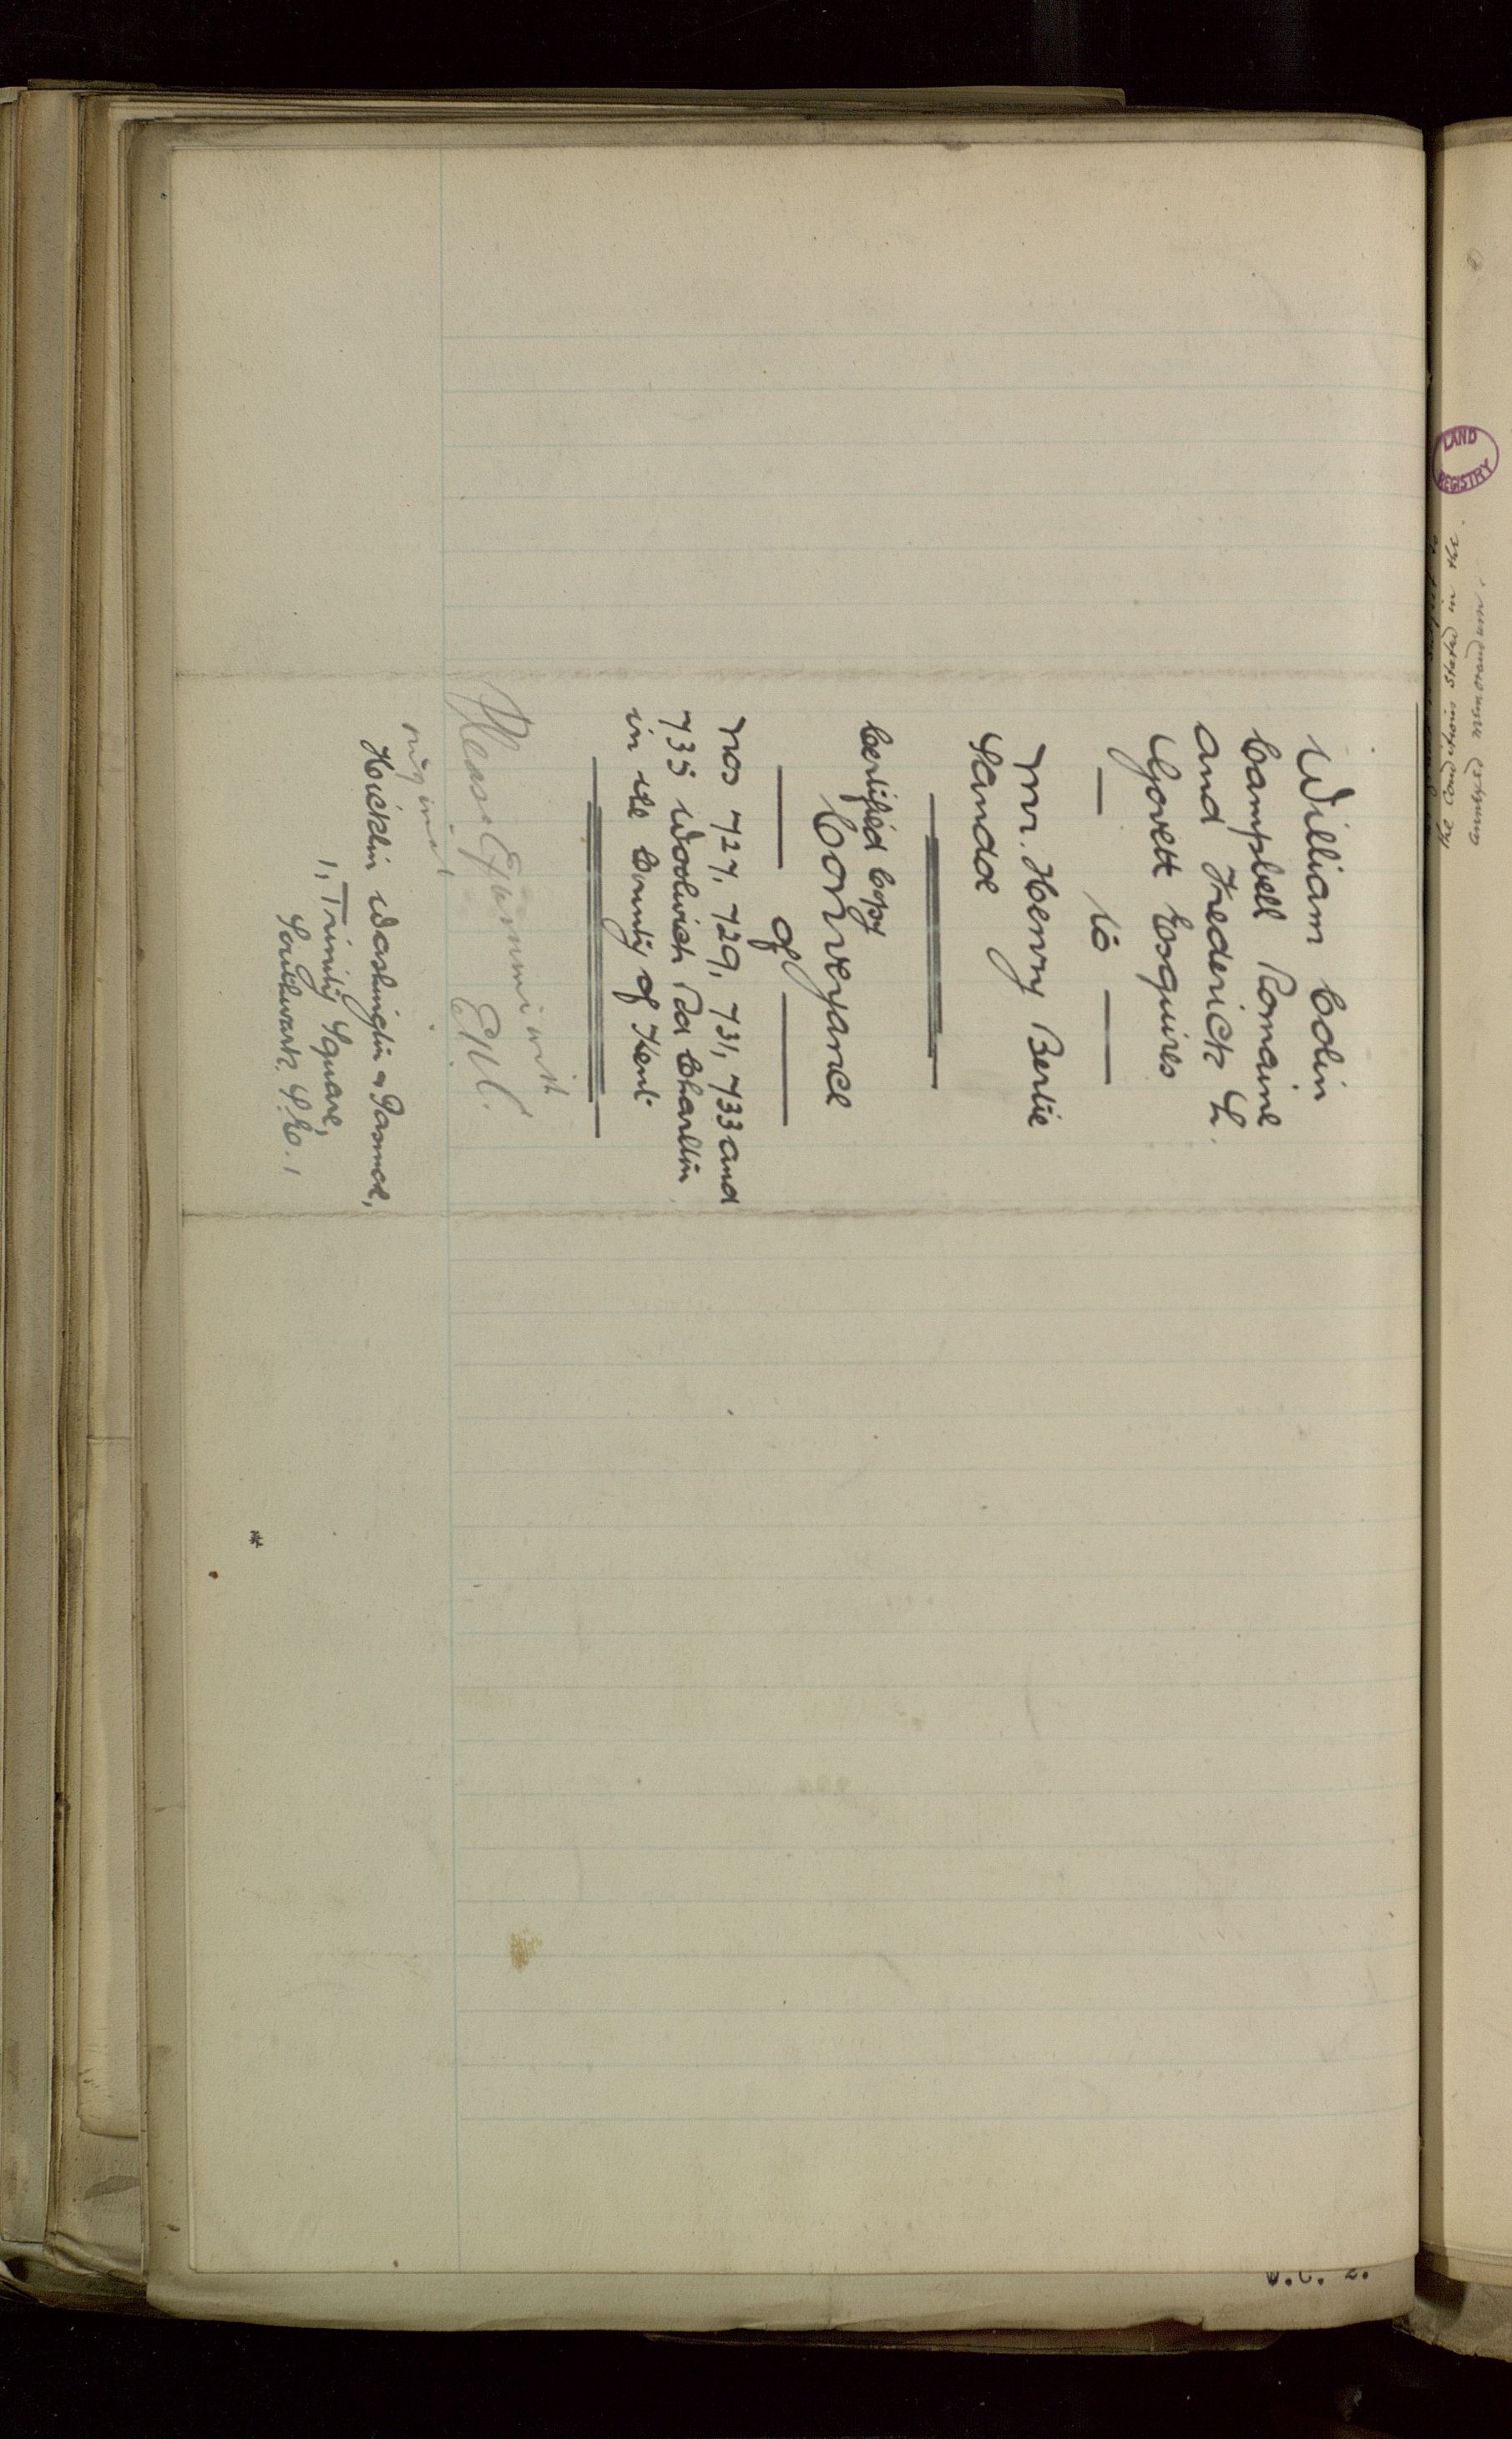 William Colin
Campbell Romaine
and Frederick L.
Govett Esquires
— to —
Mr. Henry Bertie
Sandoe
Certified Copy
Conveyance
— of —
Nos 727, 729, 731, 733 and
735 Woolwich Rd Charlton
in the County of Kent
Please Examine with
E.H.C.
original
Hicklin Washington & Pasmore,
1, Trinity Square,
Southwark, S.E.1
LAND
REGISTRY
the Conditions stated in the
annexed memorandum.